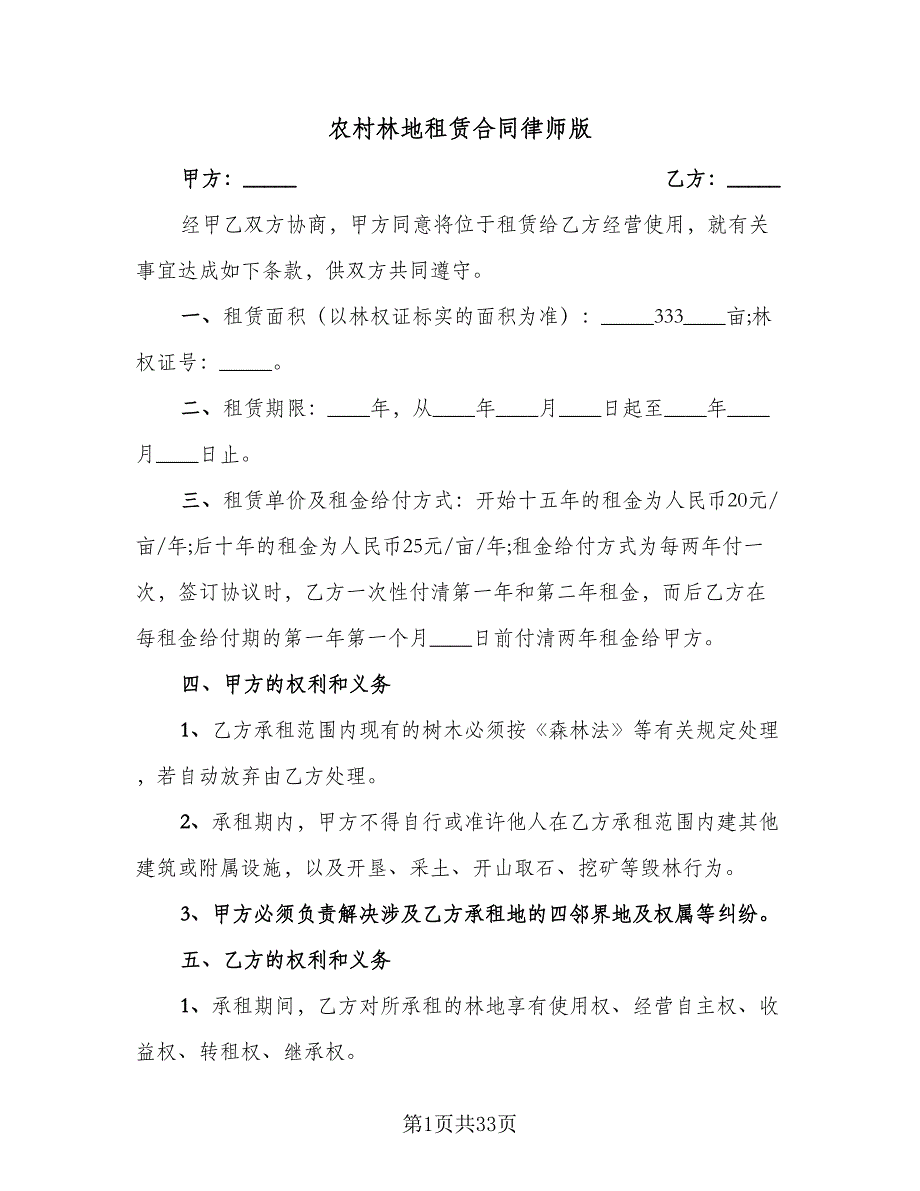 农村林地租赁合同律师版
甲方：_____ 乙方：_____
经甲乙双方协商，甲方同意将位于租赁给乙方经营使用，就有关
事宜达成如下条款，供双方共同遵守。
一、租赁面积（以林权证标实的面积为准）：_____333____亩;林
权证号：_____。
二、租赁期限：____年，从____年____月____日起至____年____
月____日止。
三、租赁单价及租金给付方式：开始十五年的租金为人民币20元/
亩/年;后十年的租金为人民币25元/亩/年;租金给付方式为每两年付一
次，签订协议时，乙方一次性付清第一年和第二年租金，而后乙方在
每租金给付期的第一年第一个月____日前付清两年租金给甲方。
四、甲方的权利和义务
1、乙方承租范围内现有的树木必须按《森林法》等有关规定处理
，若自动放弃由乙方处理。
2、承租期内，甲方不得自行或准许他人在乙方承租范围内建其他
建筑或附属设施，以及开垦、采土、开山取石、挖矿等毁林行为。
3、甲方必须负责解决涉及乙方承租地的四邻界地及权属等纠纷。
五、乙方的权利和义务
1、承租期间，乙方对所承租的林地享有使用权、经营自主权、收
益权、转租权、继承权。
第1页共33页